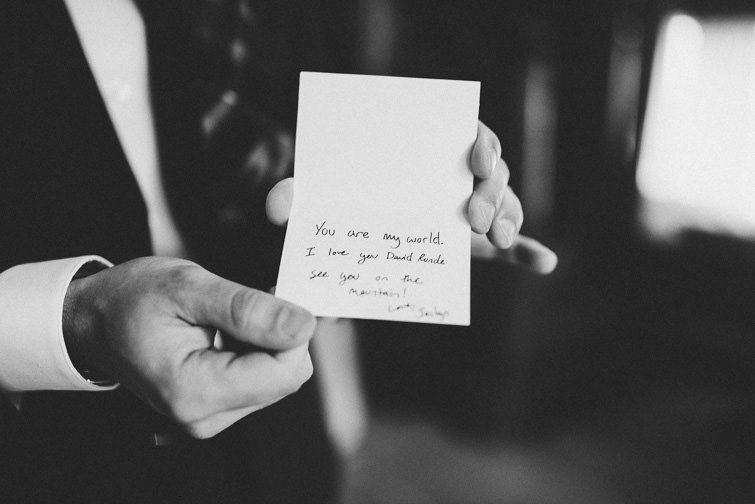 You are my world.
I love you David Runde
See you on the
mountain!
Love,